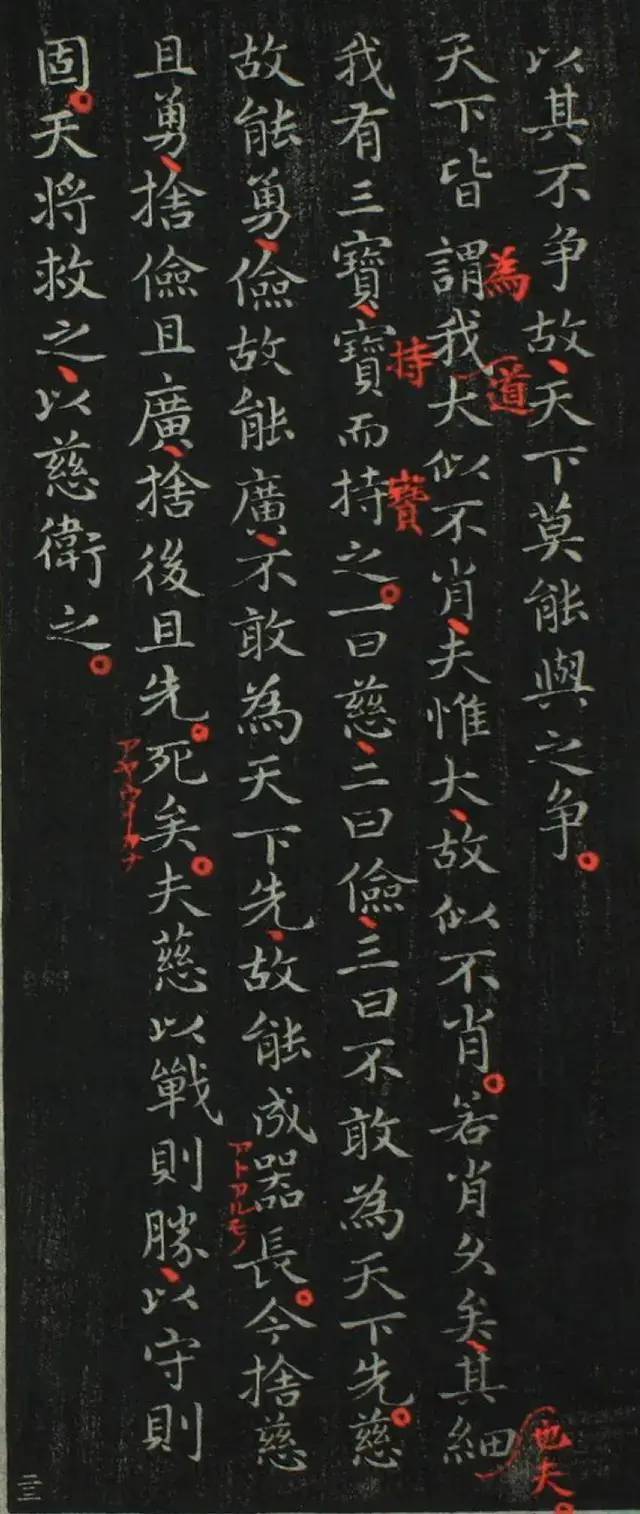 以其不争故、天下莫能與之争。
為
道
天下皆謂我大似不肖、夫惟大、故似不肖。若肖久矣、其細
也夫。
持
寶
我有三寶、寶而持之。一曰慈、二曰儉、三曰不敢為天下先。慈
故能勇、儉故能廣、不敢為天下先、故能成器長。今捨慈
アトアルモノ
且勇、捨儉且廣、捨後且先。死矣。夫慈以戰則勝、以守則
固。天将救之、以慈衛之。
二三